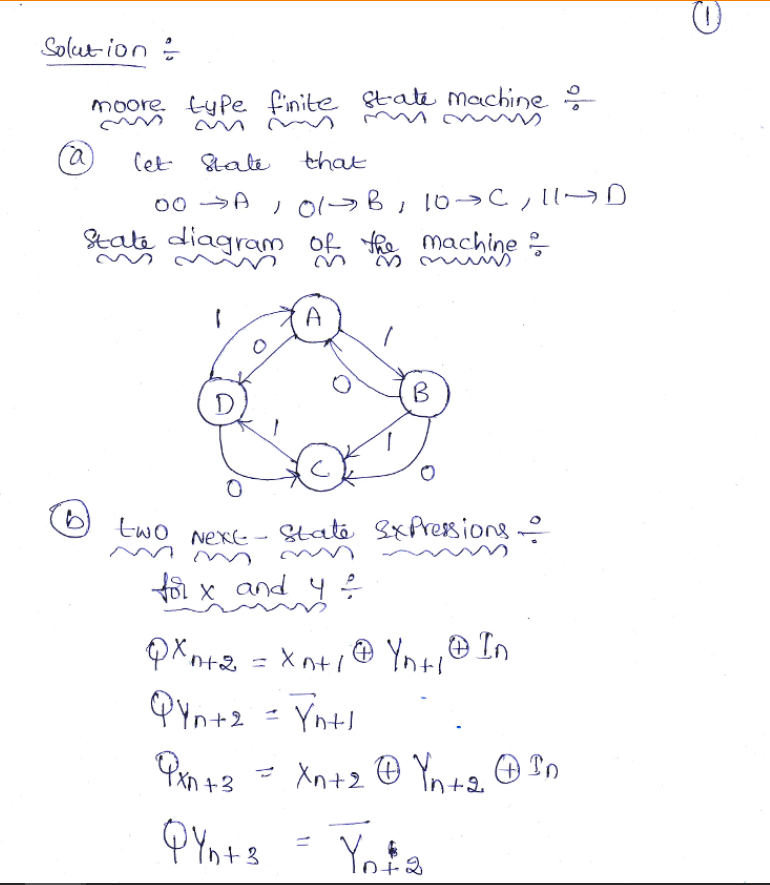 ①
Solution ÷
moore type finite state machine ÷
ⓐ let state that
00 → A , 01 → B , 10 → C , 11 → D
State diagram of the machine ÷
1
A
0
1
0
D
B
1
1
C
0
0
ⓑ two Next - State Expressions ÷
for x and y ÷
QXn+2 = Xn+1 ⊕ Yn+1 ⊕ In
QYn+2 = Y̅n+1
QXn+3 = Xn+2 ⊕ Yn+2 ⊕ In
QYn+3 = Y̅n+2